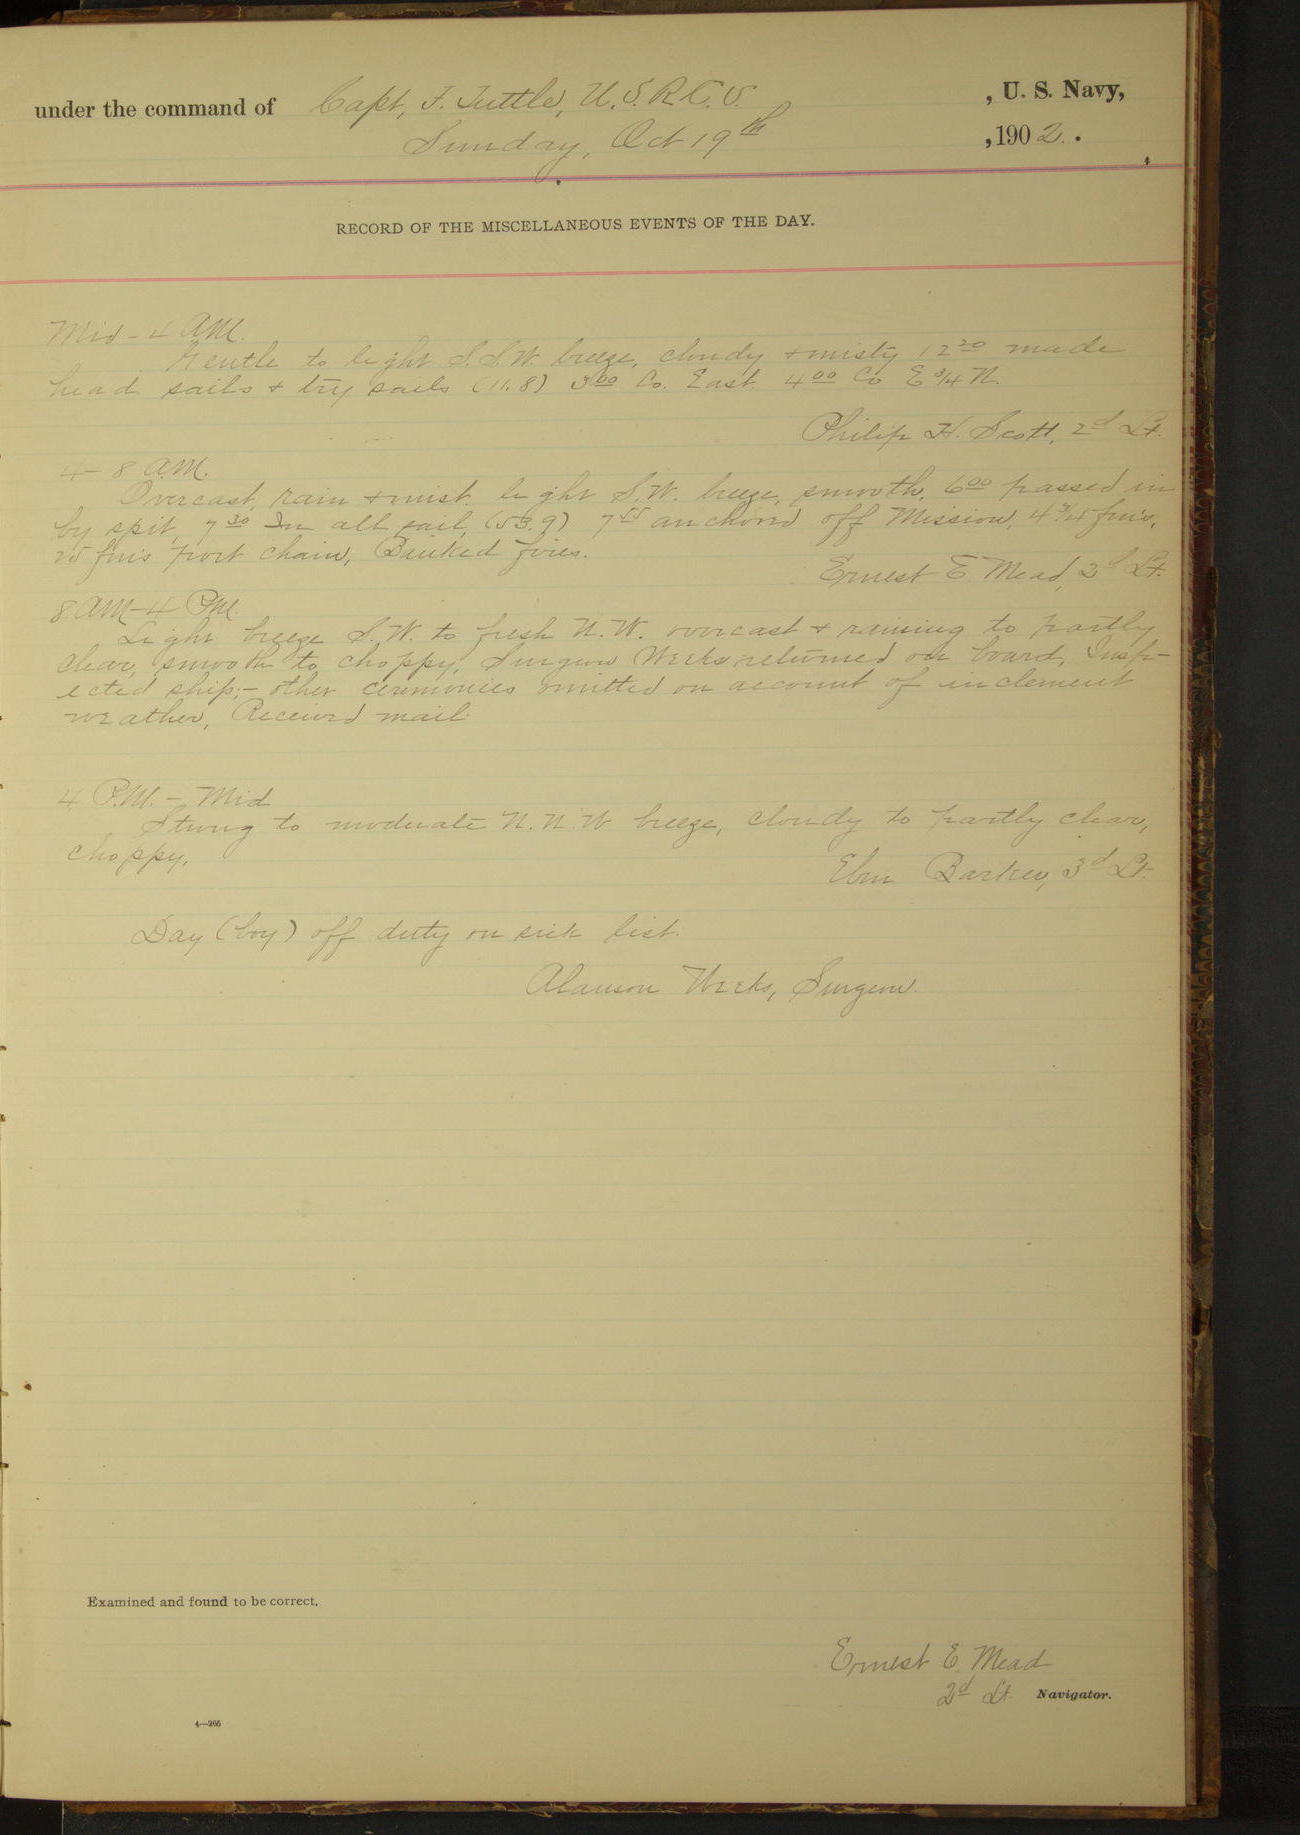 under the command of Capt, F. Tuttle, U.S.R.C.S. , U. S. Navy,
Sunday, Oct 19th , 1902.
RECORD OF THE MISCELLANEOUS EVENTS OF THE DAY.
Mid - 4 AM.
Gentle to light S.S.W. breeze, cloudy & misty 12 20 made
head sails & try sails (11.8) 3 00 Co. East. 4 00 Co E 3/4 N.
Philip H. Scott, 2d Lt.
4 - 8 A.M.
Overcast, rain & mist. light S.W. breeze, smooth, 6 00 passed in
by spit, 7 30 In all sail, (53.9) 7 55 anchored off Mission, 4 3/4 fm's,
25 fm's port chain, Banked fires.
Ernest E. Mead, 2d Lt.
8 AM - 4 PM.
Light breeze S.W. to fresh N.W. overcast & raining to partly
clear, smooth to choppy, Surgeon Weeks returned on board, Insp-
ected ship;- other ceremonies omitted on account of inclement
weather, Received mail.
4 P.M. - Mid
Strong to moderate N.N.W breeze, cloudy to partly clear,
choppy.
Eben Barker, 3d Lt.
Day (boy) off duty on sick list.
Alanson Weeks, Surgeon.
Examined and found to be correct.
Ernest E. Mead
2d Lt. Navigator.
4—265